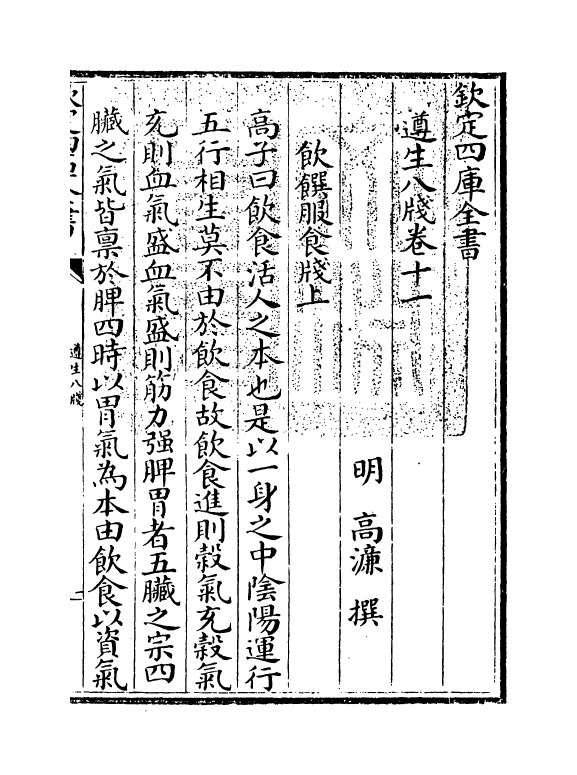 欽定四庫全書
遵生八牋卷十一
明 高濂 撰
飲饌服食牋上
高子曰飲食活人之本也是以一身之中陰陽運行
五行相生莫不由於飲食故飲食進則穀氣充穀氣
充則血氣盛血氣盛則筋力强脾胃者五臟之宗四
臟之氣皆禀於脾四時以胃氣為本由飲食以資氣
遵生八牋